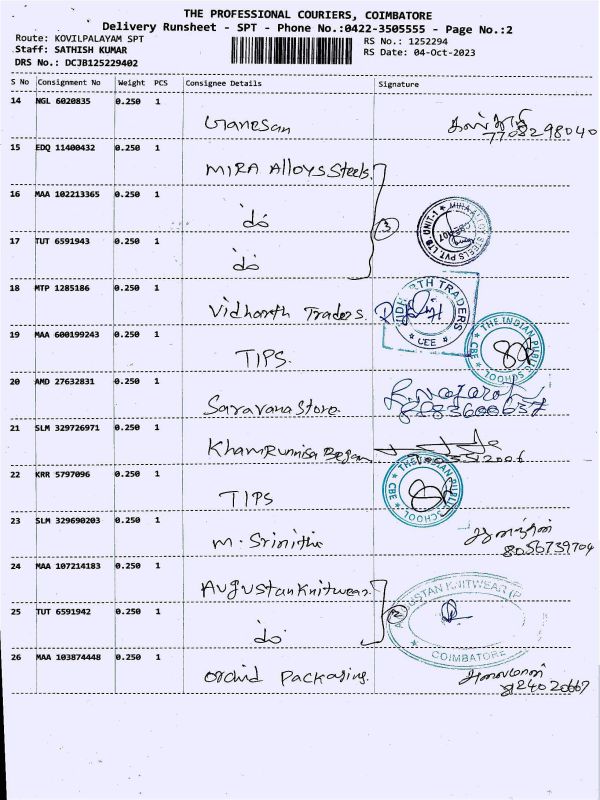 THE PROFESSIONAL COURIERS, COIMBATORE
Delivery Runsheet - SPT - Phone No.:0422-3505555 - Page No.:2
Route: KOVILPALAYAM SPT
RS No.: 1252294
Staff: SATHISH KUMAR
RS Date: 04-Oct-2023
DRS No.: DCJB125229402
S No Consignment No Weight PCS Consignee Details Signature
14 NGL 6020835 0.250 1
Ganesan
7708298040
15 EDQ 11400432 0.250 1
MIRA Alloys Steels.
16 MAA 102213365 0.250 1
do
3
MIRA ALLOY STEELS PVT. LTD. UNIT-1
17 TUT 6591943 0.250 1
do
18 MTP 1285186 0.250 1
Vidharth Traders
VIDHARTH TRADERS
CBE
19 MAA 600199243 0.250 1
TIPS.
THE INDIAN PUBLIC SCHOOL
CBE
20 AMD 27632831 0.250 1
Saravana Store
21 SLM 329726971 0.250 1
Khamrunnisa Begam
22 KRR 5797096 0.250 1
TIPS
THE INDIAN PUBLIC SCHOOL
CBE
23 SLM 329690203 0.250 1
M. Srinitha
8056739704
24 MAA 107214183 0.250 1
Augustan Knitwear.
AUGUSTAN KNITWEAR (P)
COIMBATORE
25 TUT 6591942 0.250 1
do
2
26 MAA 103874448 0.250 1
Orchid Packaging.